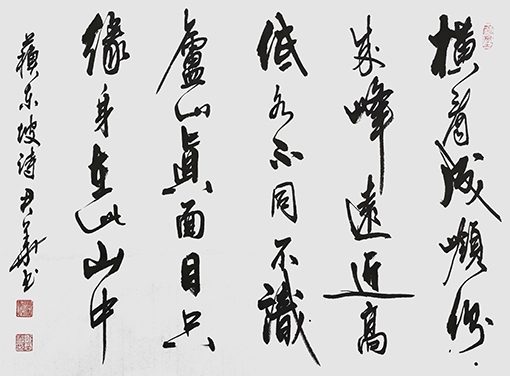 橫看成嶺側
成峰遠近高
低各不同不識
廬山眞面目只
緣身在此山中
蘇東坡詩